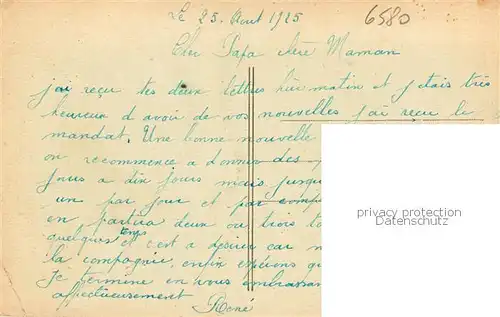 Le 25. Aout 1925
6580
Cher Papa chere Maman
j'ai reçu tes deux lettres hier matin et j'etais très
heureux d avoir de vos nouvelles j'ai reçu le
mandat. Une bonne nouvelle
on recommence a donner des
jours a dix jours mais jusqu
un par jour et par comp
en partira deux ou trois to
quelques temps et c'est a desirer car
la compagnie, enfin espérons qu
Je termine en vous embrassan
affectueusement
René
privacy protection
Datenschutz